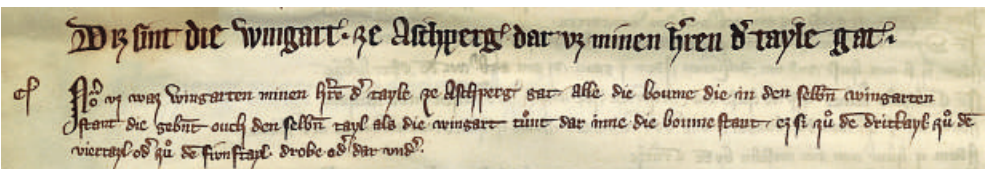 Diz sint die wingart͛. ze Aschperg͛ dar vz minen h͛ren d͛ tayle gat.
No͛ vz waz wingarten minen h͛re̅ d͛ tayle ze Aschperg͛ gat alle die boume die in den selbn̅ wingarten
stant die gebnt ouch den selbn̅ tayl als die wingart tůnt dar inne die boume stant. ez si zů de̅ dritteayl zů de̅
viertayl od͛ zů de̅ fivnftayl. drobe od͛ dar vnd͛.